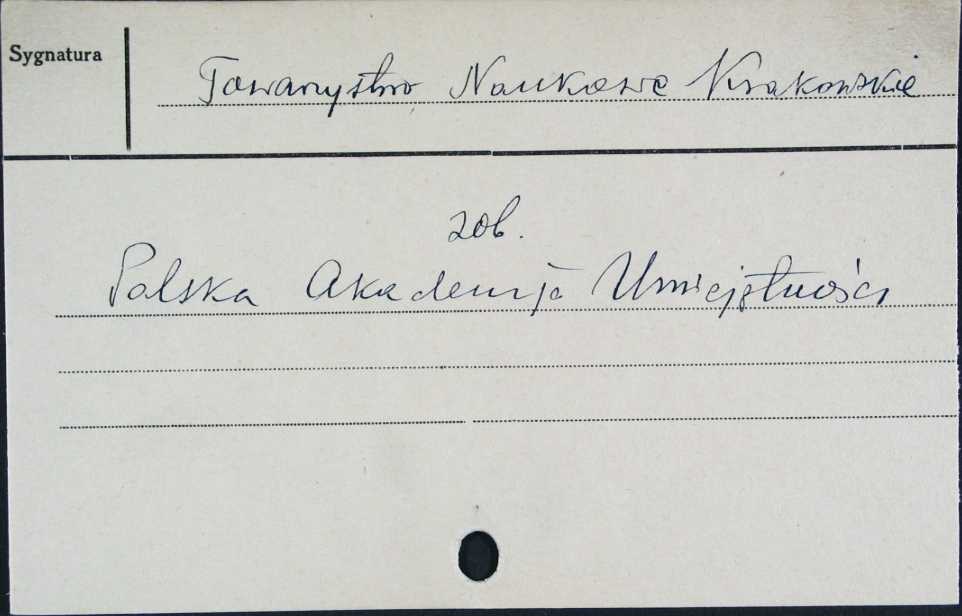 Sygnatura
Towarzystwo Naukowe Krakowskie
zob.
Polska Akademja Umiejętności